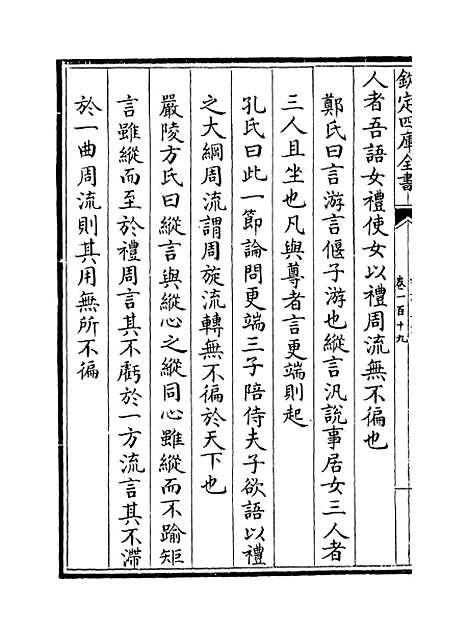 欽定四庫全書
卷一百十九
人者吾語女禮使女以禮周流無不徧也
鄭氏曰言游言偃子游也縱言汎說事居女三人者
三人且坐也凡與尊者言更端則起
孔氏曰此一節論問更端三子陪侍夫子欲語以禮
之大綱周流謂周旋流轉無不徧於天下也
嚴陵方氏曰縱言與縱心之縱同心雖縱而不踰矩
言雖縱而至於禮周言其不虧於一方流言其不滯
於一曲周流則其用無所不徧